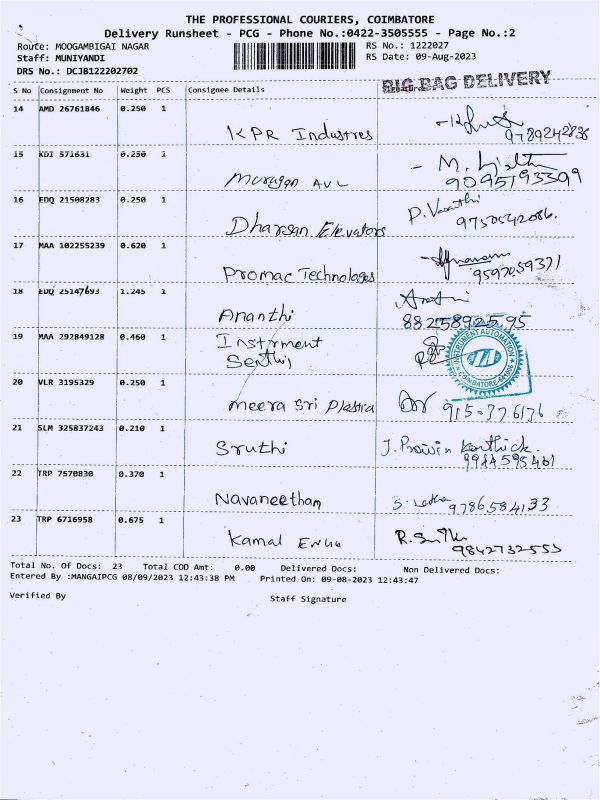 THE PROFESSIONAL COURIERS, COIMBATORE
Delivery Runsheet - PCG - Phone No.:0422-3505555 - Page No.:2
Route: MOOGAMBIGAI NAGAR RS No.: 1222027
Staff: MUNIYANDI RS Date: 09-Aug-2023
DRS No.: DCJB122202702
S No Consignment No Weight PCS Consignee Details BIG BAG DELIVERY
14 AMD 26761846 0.250 1
KPR Industres 9789242836
15 KDI 571631 0.250 1
Murugan AVL 9095193399
16 EDQ 21508283 0.250 1
Dharsan Elevators 9750542086.
17 MAA 102255239 0.620 1
Promac Technologes 9597059371
18 EDQ 25147693 1.245 1
Ananthi 8825892595
19 MAA 292849128 0.460 1
Instrment INSTRUMENT AUTOMATION
COIMBATORE
20 VLR 3195329 0.250 1
meera Sri Plastra
21 SLM 325837243 0.210 1
Sruthi J. Pravin Karthick.
22 TRP 7570830 0.370 1
Navaneetham 9786584133
23 TRP 6716958 0.675 1
Kamal 9842732553
Total No. Of Docs: 23 Total COD Amt: 0.00 Delivered Docs: Non Delivered Docs:
Entered By :MANGAIPCG 08/09/2023 12:43:38 PM Printed On: 09-08-2023 12:43:47
Verified By Staff Signature